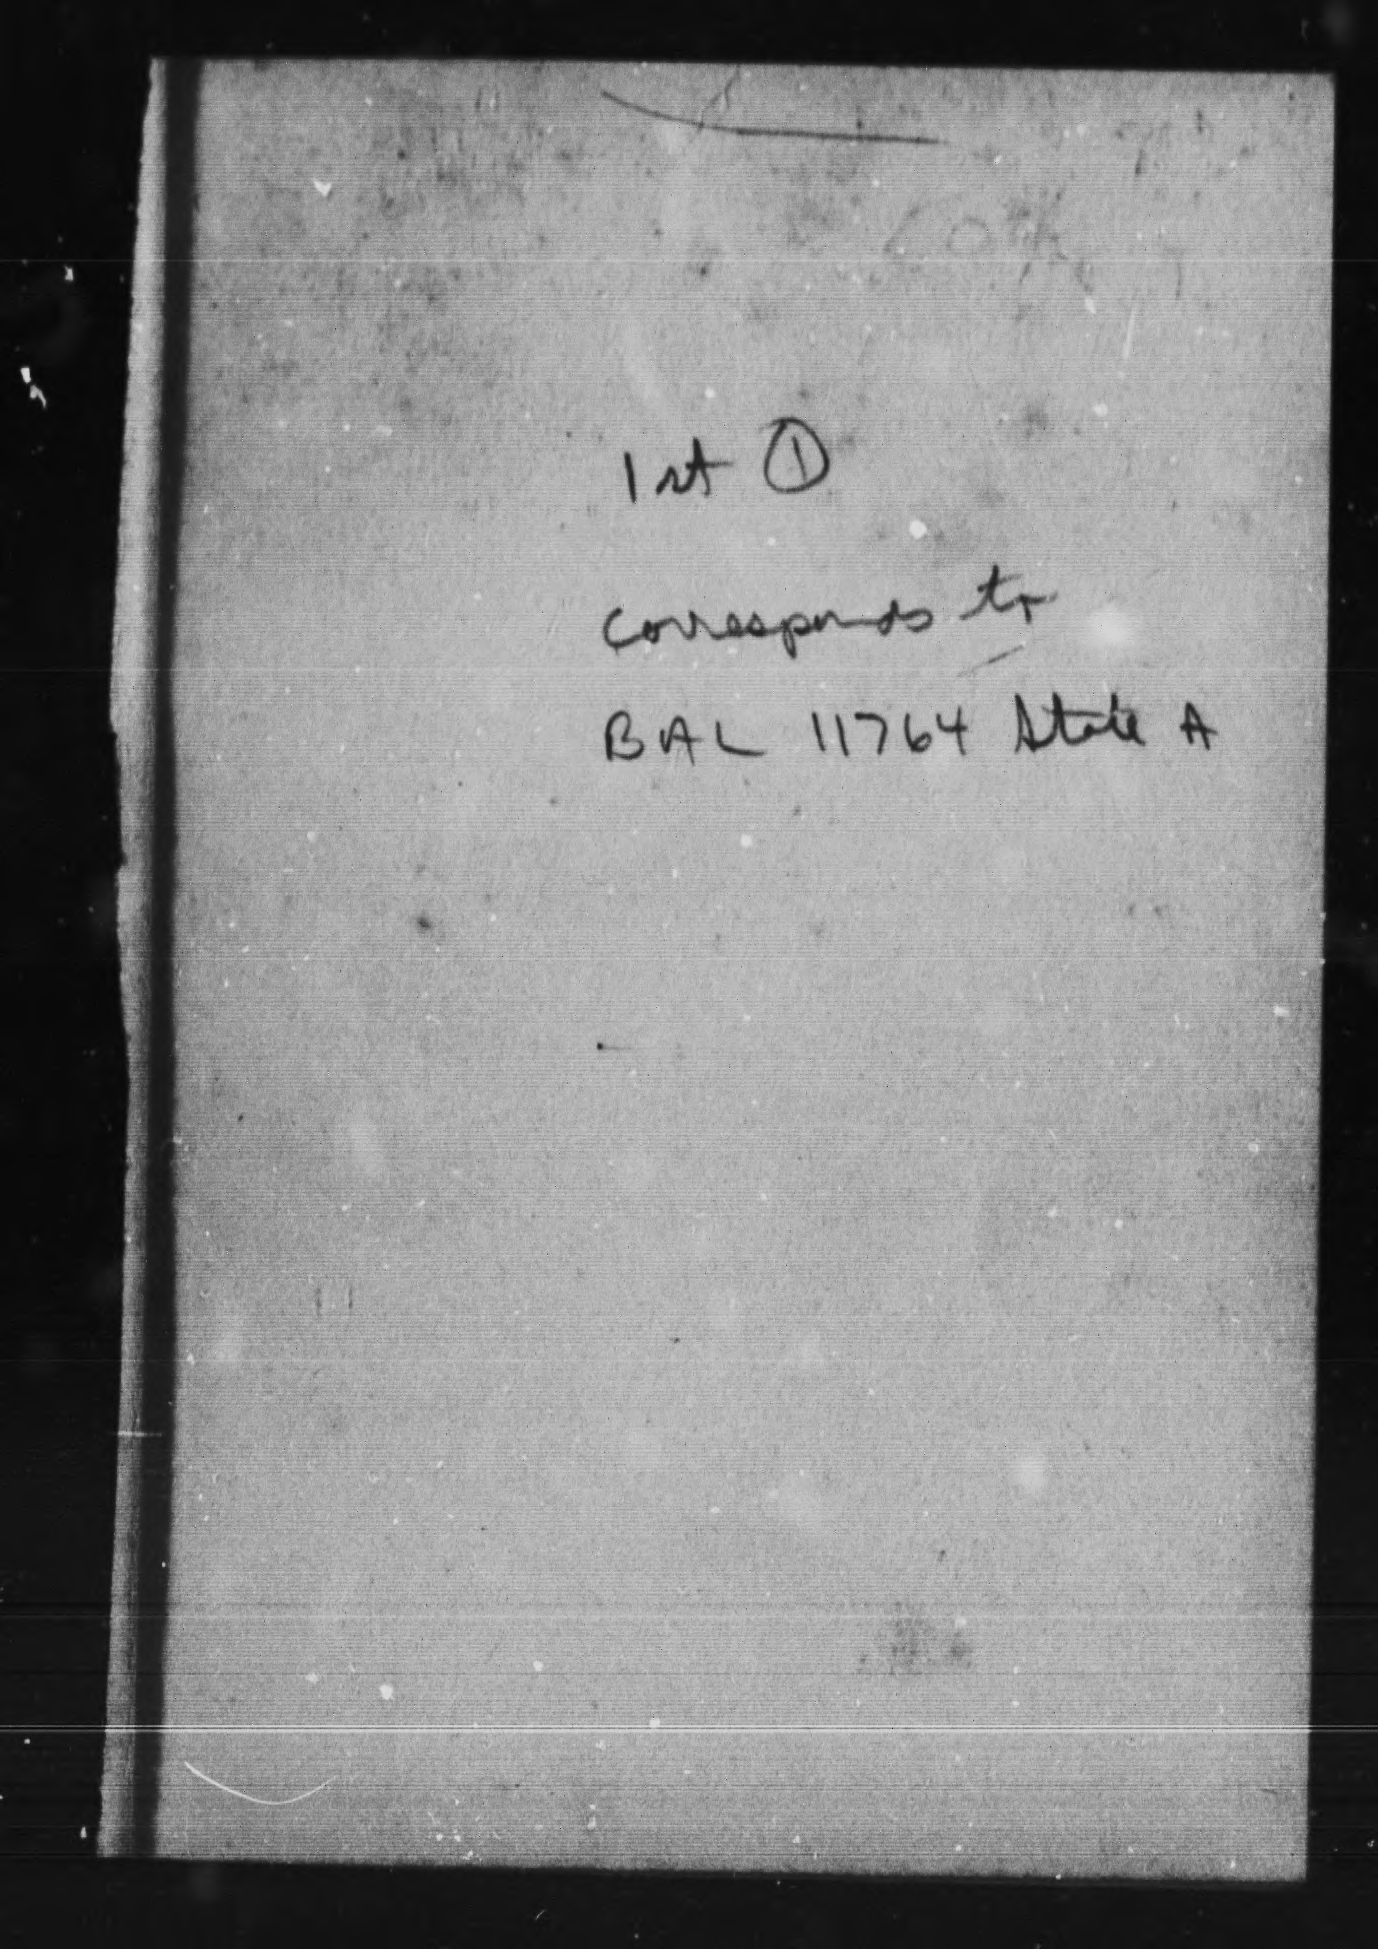 1st ①
corresponds to
BAL 11764 State A